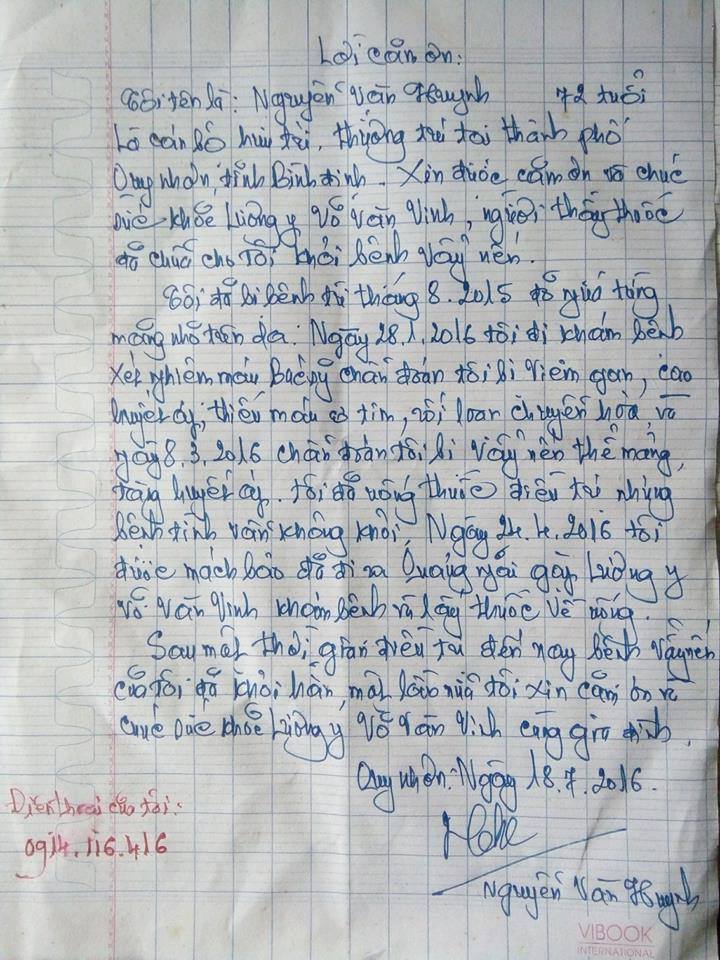 Lời cảm ơn:
Tôi tên là: Nguyễn Văn Huynh 72 tuổi
Là cán bộ hưu trí, thường trú tại thành phố
Quy nhơn, tỉnh Bình định. Xin được cảm ơn và chúc
sức khỏe Lương y Võ Văn Vinh, người thầy thuốc
đã chữa cho tôi khỏi bệnh vẩy nến.
Tôi đã bị bệnh từ tháng 8.2015 đỏ ngứa từng
mảng nhỏ trên da. Ngày 28.1.2016 tôi đi khám bệnh
xét nghiệm máu Bác sỹ chẩn đoán tôi bị viêm gan, cao
huyết áp, thiếu máu cơ tim, rối loạn chuyển hóa, và
ngày 8.3.2016 chẩn đoán tôi bị vẩy nến thể mảng,
tăng huyết áp. Tôi đã uống thuốc điều trị nhưng
bệnh tình vẫn không khỏi, Ngày 24.4.2016 tôi
được mách bảo đã đi ra Quảng Ngãi gặp Lương y
Võ Văn Vinh khám bệnh và lấy thuốc về uống.
Sau một thời gian điều trị đến nay bệnh vẩy nến
của tôi đã khỏi hẳn, một lần nữa tôi xin cảm ơn và
chúc sức khỏe Lương y Võ Văn Vinh cùng gia đình.
Quy nhơn. Ngày 18.7.2016.
Điện thoại của tôi:
0914.116.416
Nguyễn Văn Huynh
VIBOOK
INTERNATIONAL